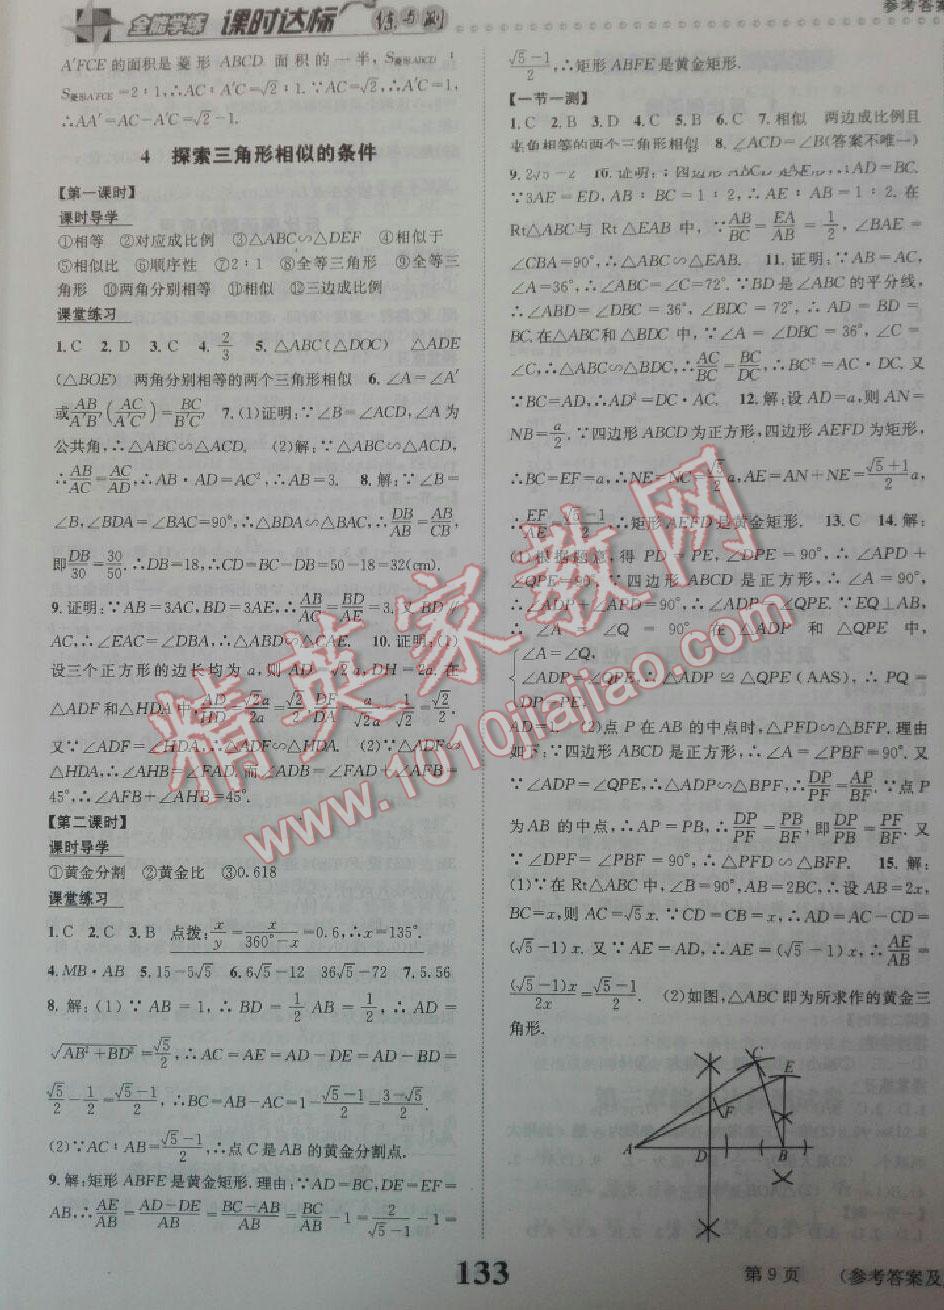 全能学练 课时达标 练与测
参考答案
A′FCE的面积是菱形ABCD面积的一半,S菱形ABCD∶
S菱形A′FCE=2∶1,∴AC∶A′C=√2∶1.∵AC=√2,∴A′C=1,
∴AA′=AC-A′C=√2-1.
4 探索三角形相似的条件
【第一课时】
课时导学
①相等 ②对应成比例 ③△ABC∽△DEF ④相似于
⑤相似比 ⑥顺序性 ⑦2∶1 ⑧全等三角形 ⑨全等三
角形 ⑩两角分别相等 ⑪相似 ⑫三边成比例
课堂练习
1.C 2.D 3.C 4.2/3 5.△ABC(△DOC) △ADE
(△BOE) 两角分别相等的两个三角形相似 6.∠A=∠A′
或AB/A′B′(AC/A′C′)=BC/B′C′ 7.(1)证明:∵∠B=∠ACD,∠A为
公共角,∴△ABC∽△ACD. (2)解:∵△ABC∽△ACD,
∴AB/AC=AC/AD,∴AB·AD=AC²,∴AB=3. 8.解:∵∠B=
∠B,∠BDA=∠BAC=90°,∴△BDA∽△BAC,∴DB/AB=AB/CB,
即DB/30=30/50.∴DB=18,∴CD=BC-DB=50-18=32(cm).
9.证明:∵AB=3AC,BD=3AE,∴AB/AC=BD/AE=3.又∵BD∥
AC,∴∠EAC=∠DBA,∴△ABD∽△CAE. 10.证明:(1)
设三个正方形的边长均为a,则AD=√2a,DH=2a.在
△ADF和△HDA中,AD/HD=√2a/2a=√2/2,DF/DA=a/√2a=1/√2=√2/2.
又∵∠ADF=∠HDA,∴△ADF∽△HDA. (2)∵△ADF∽
△HDA,∴∠AHB=∠FAD.而∠ADB=∠FAD+∠AFB=
45°,∴∠AFB+∠AHB=45°.
【第二课时】
课时导学
①黄金分割 ②黄金比 ③0.618
课堂练习
1.C 2.C 3.B 点拨:x/y=x/(360°-x)=0.6,∴x=135°.
4.MB·AB 5.15-5√5 6.6√5-12 36√5-72 7.5.56
8.解:(1)∵AB=1,∴BD=1/2AB=1/2,∴AD=
√(AB²+BD²)=√5/2,∴AC=AE=AD-DE=AD-BD=
√5/2-1/2=(√5-1)/2,∴BC=AB-AC=1-(√5-1)/2=(3-√5)/2.
(2)∵AC∶AB=(√5-1)/2,∴点C是AB的黄金分割点.
9.解:矩形ABFE是黄金矩形.理由:∵AD=BC,DE=EF=
AB,∴AE/AB=(AD-DE)/AB=(BC-AB)/AB=BC/AB-1=2/(√5-1)-1=
(√5-1)/2,∴矩形ABFE是黄金矩形.
【一节一测】
1.C 2.B 3.D 4.C 5.B 6.C 7.相似 两边成比例且
夹角相等的两个三角形相似 8.∠ACD=∠B(答案不唯一)
9.2√5-2 10.证明:∵四边形ABCD是矩形,∴AD=BC.
∵3AE=ED,AB∶BC=1∶2,∴AE∶AB=1∶2.在
Rt△ABC与Rt△EAB中,∵AB/BC=EA/AB=1/2,∠BAE=
∠CBA=90°,∴△ABC∽△EAB. 11.证明:∵AB=AC,
∠A=36°,∴∠ABC=∠C=72°.∵BD是∠ABC的平分线,
∴∠ABD=∠DBC=36°,∠BDC=72°,∴AD=BD=
BC.在△ABC和△BDC中,∵∠A=∠DBC=36°,∠C=
∠C,∴△ABC∽△BDC,∴AC/BC=BC/DC,∴BC²=AC·DC.又
∵BC=AD,∴AD²=DC·AC. 12.解:设AD=a,则AN=
NB=a/2.∵四边形ABCD为正方形,四边形AEFD为矩形,
∴BC=EF=a,∴NE=NC=√5/2a,AE=AN+NE=(√5+1)/2a,
∴EF/AE=(√5-1)/2.∴矩形AEFD是黄金矩形. 13.C 14.解:
(1)根据题意,得PD=PE,∠DPE=90°,∴∠APD+
∠QPE=90°.∵四边形ABCD是正方形,∴∠A=90°,
∴∠ADP+∠APD=90°,∴∠ADP=∠QPE.∵EQ⊥AB,
∴∠A=∠Q=90°.在△ADP和△QPE中,
{∠A=∠Q,
∠ADP=∠QPE,∴△ADP≌△QPE(AAS),∴PQ=
DP=PE.
AD=1. (2)点P在AB的中点时,△PFD∽△BFP.理由
如下:∵四边形ABCD是正方形,∴∠A=∠PBF=90°.又
∵∠ADP=∠QPE,∴△ADP∽△BPF,∴DP/PF=AP/BF.∵点P
为AB的中点,∴AP=PB,∴DP/PF=PB/BF,即DP/PB=PF/BF.又
∵∠DPF=∠PBF=90°,∴△PFD∽△BFP. 15.解:
(1)∵在Rt△ABC中,∠B=90°,AB=2BC,∴设AB=2x,
BC=x,则AC=√5x.∵CD=CB=x,∴AD=AC-CD=
(√5-1)x.又∵AE=AD,∴AE=(√5-1)x,∴AE/AB=
(√5-1)x/2x=(√5-1)/2. (2)如图,△ABC即为所求作的黄金三
角形.
C
E
F
A
D
B
133
第9页
(参考答案及
精英家教网
www.1010jiajiao.com